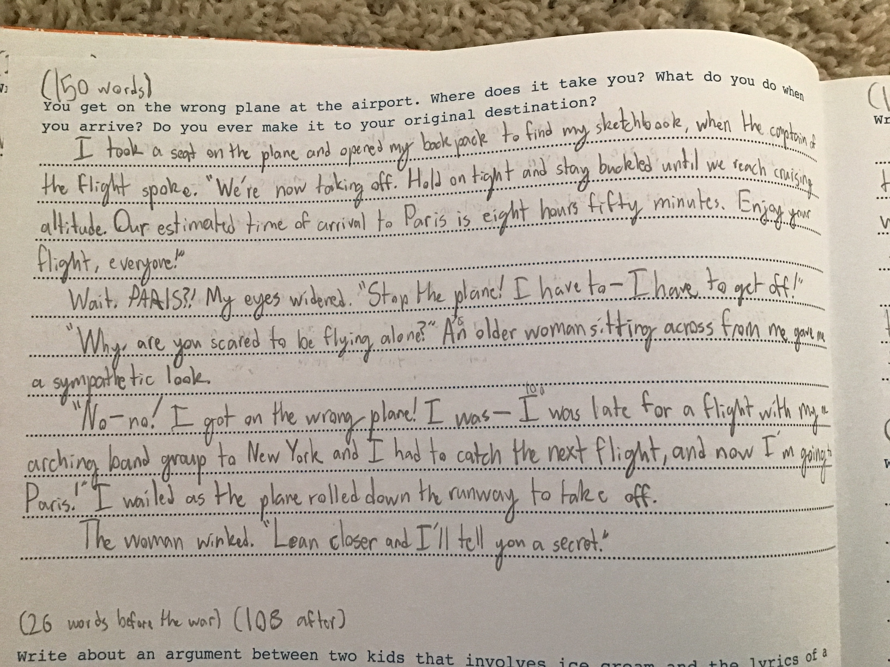 (150 words)
You get on the wrong plane at the airport. Where does it take you? What do you do when
you arrive? Do you ever make it to your original destination?
I took a seat on the plane and opened my backpack to find my sketchbook, when the captain of
the flight spoke. "We're now taking off. Hold on tight and stay buckled until we reach cruising
altitude. Our estimated time of arrival to Paris is eight hours fifty minutes. Enjoy your
flight, everyone!"
Wait, PARIS?! My eyes widened. "Stop the plane! I have to— I have to get off!"
"Why, are you scared to be flying alone?" An older woman sitting across from me gave me
a sympathetic look.
100
"No—no! I got on the wrong plane! I was— I was late for a flight with my m
arching band group to New York and I had to catch the next flight, and now I'm going to
Paris!" I wailed as the plane rolled down the runway to take off.
The woman winked. "Lean closer and I'll tell you a secret."
(26 words before the war) (108 after)
Write about an argument between two kids that involves ice cream and the lyrics of a